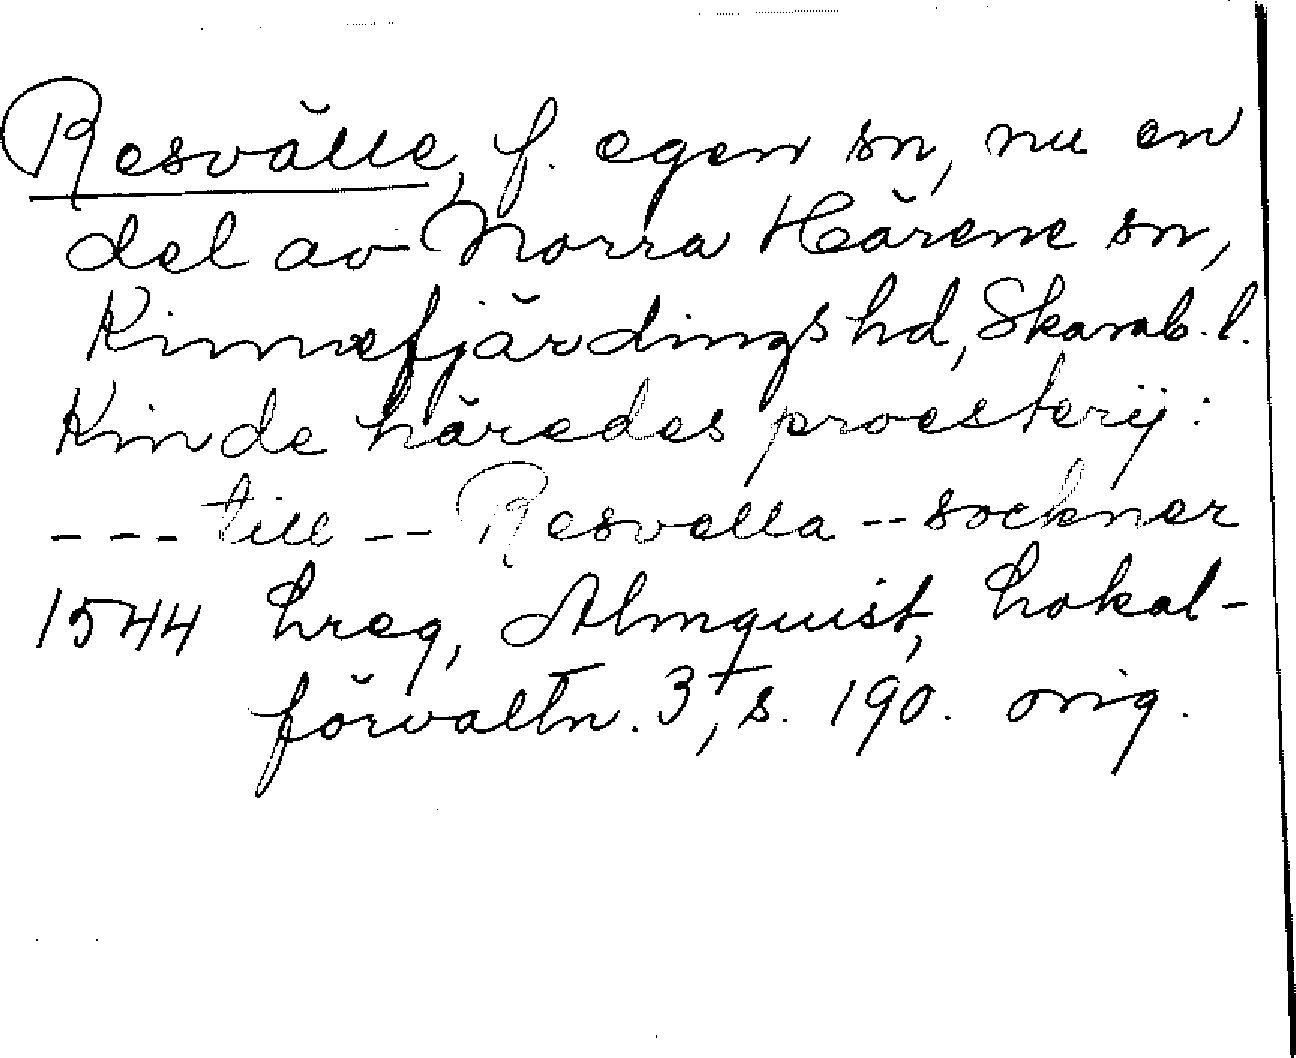 Resvälle, f. egen sn, nu en
del av Norra Härene sn,
Kinnefjärdings hd, Skarab. l.
Kinde häredes proesterij:
--- till -- Resvella -- sockner
1544 Lreg, Almquist, Lokal-
förvaltn. 3, s. 190. orig.